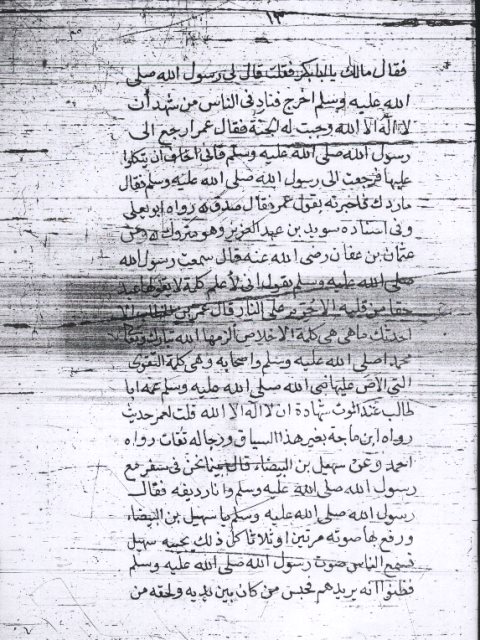 ١٣
فقال مالك يا ابا بكر فقلت قال لى رسول الله صلى
الله عليه وسلم اخرج فناد فى الناس من شهد أن
لا اله الا الله وجبت له الجنة فقال عمر ارجع الى
رسول الله صلى الله عليه وسلم فانى اخاف ان يتكلوا
عليها فرجعت الى رسول الله صلى الله عليه وسلم فقال
ما ردك فاخبرته بقول عمر فقال صدق رواه ابو يعلى
وفى اسناده سويد بن عبد العزيز وهو متروك وعن
عثمان بن عفان رضى الله عنه قال سمعت رسول الله
صلى الله عليه وسلم يقول انى لأعلم كلمة لا يقولها عبد
حقا من قلبه الا حرم على النار قال عمر بن الخطاب الا
احدثك ما هى هى كلمة الاخلاص ألزمها الله تبارك وتعالى
محمدا صلى الله عليه وسلم واصحابه وهى كلمة التقوى
التى الاص عليها نبى الله صلى الله عليه وسلم عمه ابا
طالب عند الموت شهادة ان لا اله الا الله قلت لعمر حديث
رواه ابن ماجة بغير هذا السياق ورجاله ثقات رواه
احمد وعن سهيل بن البيضاء قال بينما نحن فى سفر مع
رسول الله صلى الله عليه وسلم وانا رديفه فقال
رسول الله صلى الله عليه وسلم يا سهيل بن البيضاء
ورفع بها صوته مرتين او ثلاثا كل ذلك يجيبه سهيل
فسمع الناس صوت رسول الله صلى الله عليه وسلم
فظنوا انه يريدهم فحبس من كان بين يديه ولحقه من